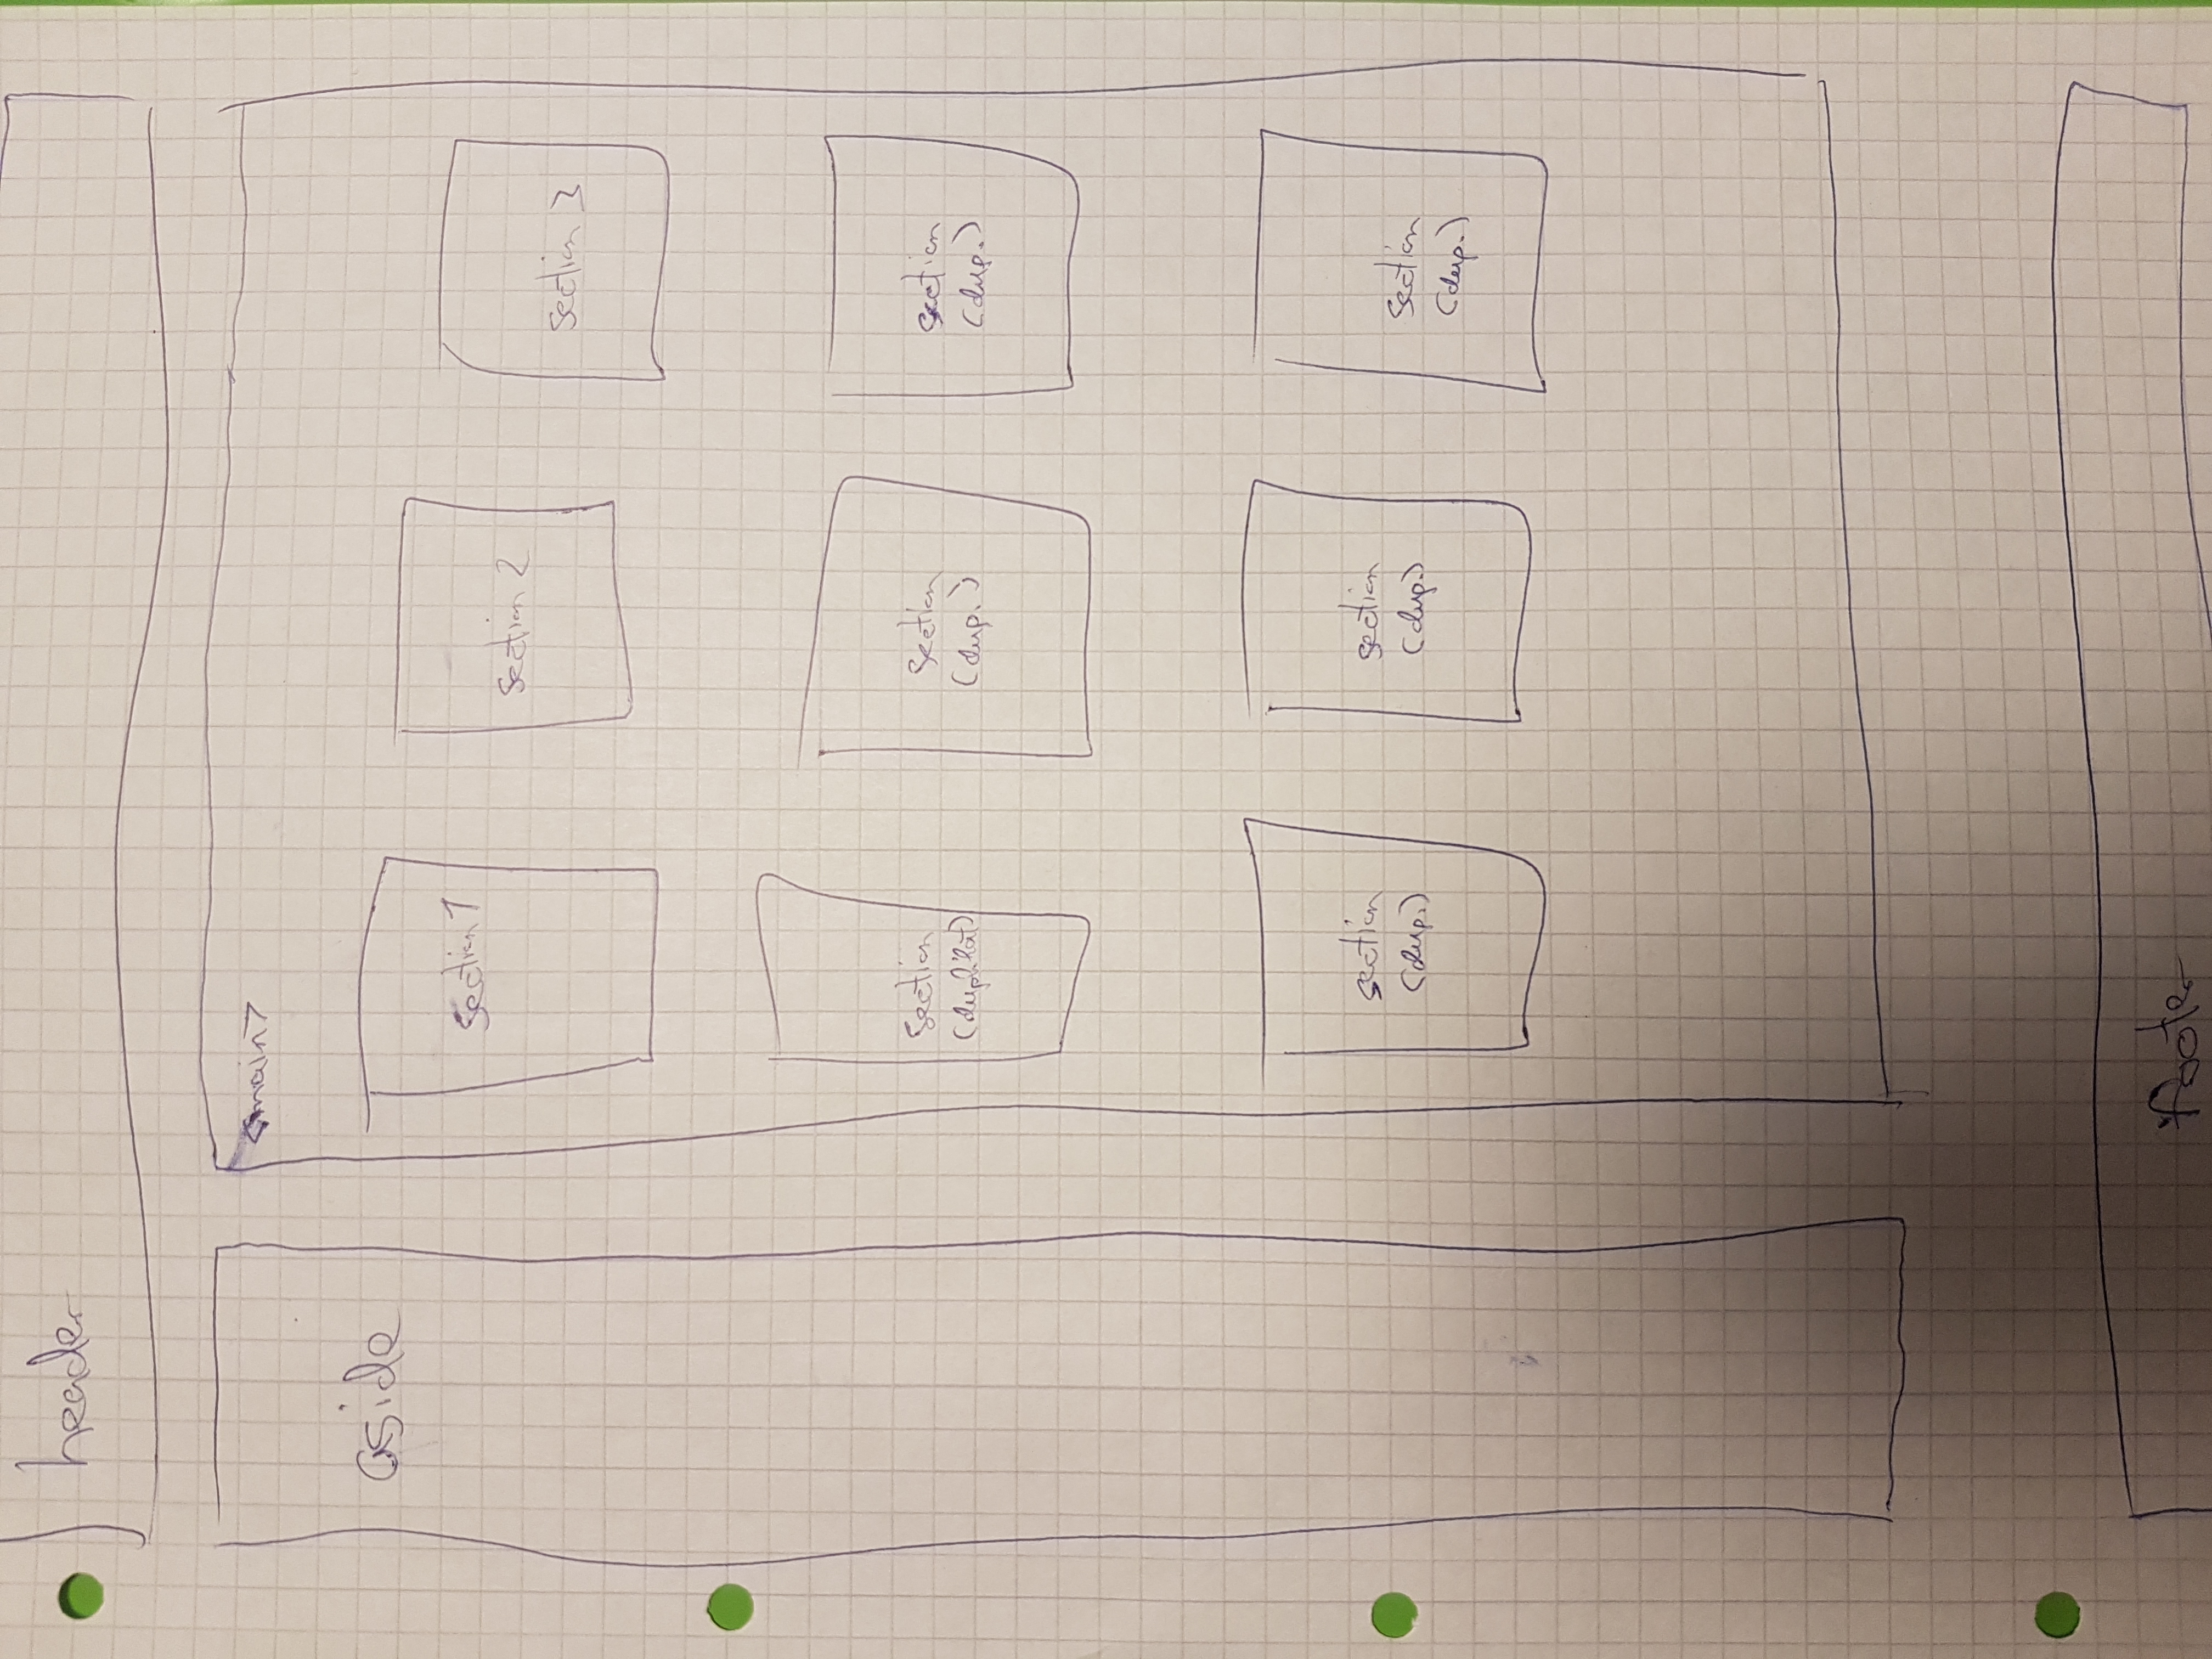 header
aside
<main>
section 1
section 2
section 3
section
(duplikat)
section
(dup.)
section
(dup.)
section
(dup.)
section
(dup.)
section
(dup.)
footer